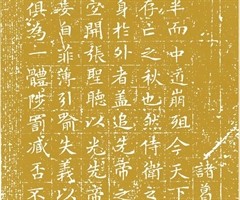 諸葛
半而中道崩殂今天下
存亡之秋也然侍衛之
身於外者蓋追先帝之
宜開張聖聽以光先帝
妄自菲薄引喻失義以
俱為一體陟罰臧否不